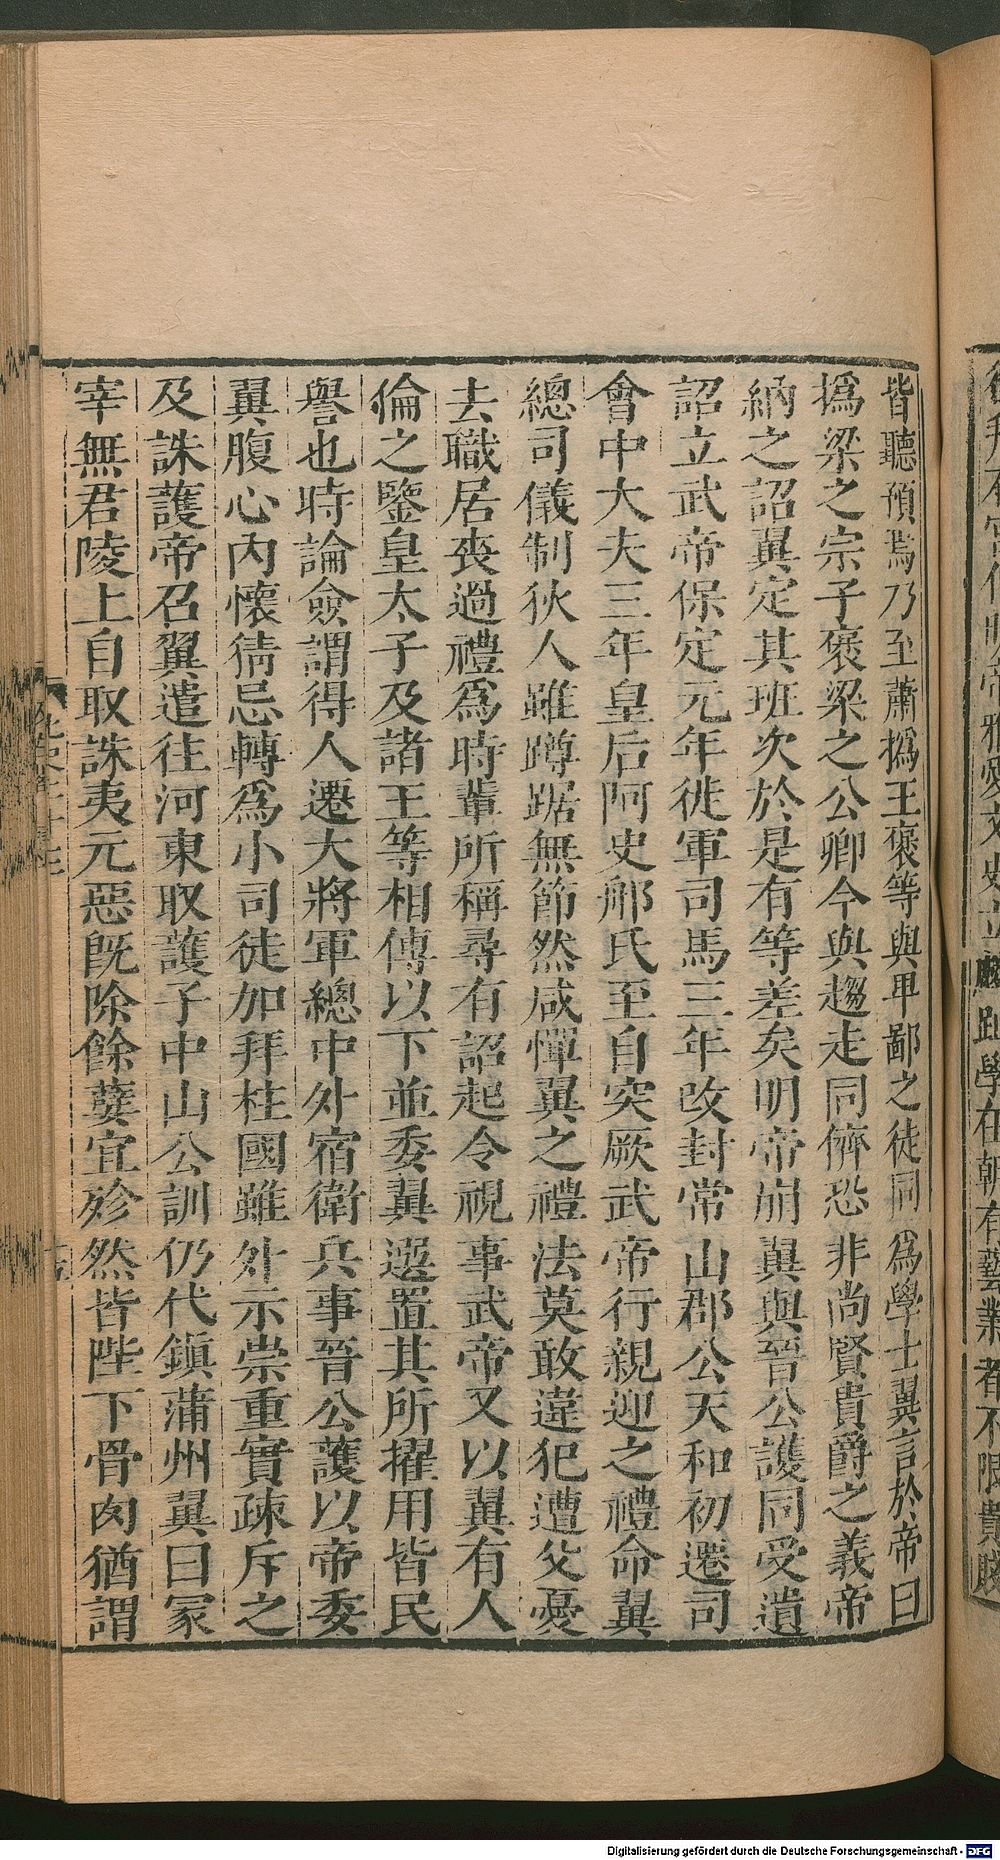 皆聽預焉乃至蕭撝王褒等與卑鄙之徒同爲學士翼言於帝曰
撝梁之宗子褒梁之公卿今與趨走同儕恐非尚賢貴爵之義帝
納之詔翼定其班次於是有等差矣明帝崩翼與晉公護同受遺
詔立武帝保定元年徙軍司馬三年改封常山郡公天和初遷司
會中大夫三年皇后阿史那氏至自突厥武帝行親迎之禮命翼
總司儀制狄人雖蹲踞無節然咸憚翼之禮法莫敢違犯遭父憂
去職居喪過禮爲時輩所稱尋有詔起令視事武帝又以翼有人
倫之鑒皇太子及諸王等相傅以下並委翼選置其所擢用皆民
譽也時論僉謂得人遷大將軍總中外宿衛兵事晉公護以帝委
翼腹心內懷猜忌轉爲小司徒加拜柱國雖外示崇重實疎斥之
及誅護帝召翼遣往河東取護子中山公訓仍代鎮蒲州翼曰冢
宰無君陵上自取誅夷元惡旣除餘孽宜殄然皆陛下骨肉猶謂
Digitalisierung gefördert durch die Deutsche Forschungsgemeinschaft - DFG